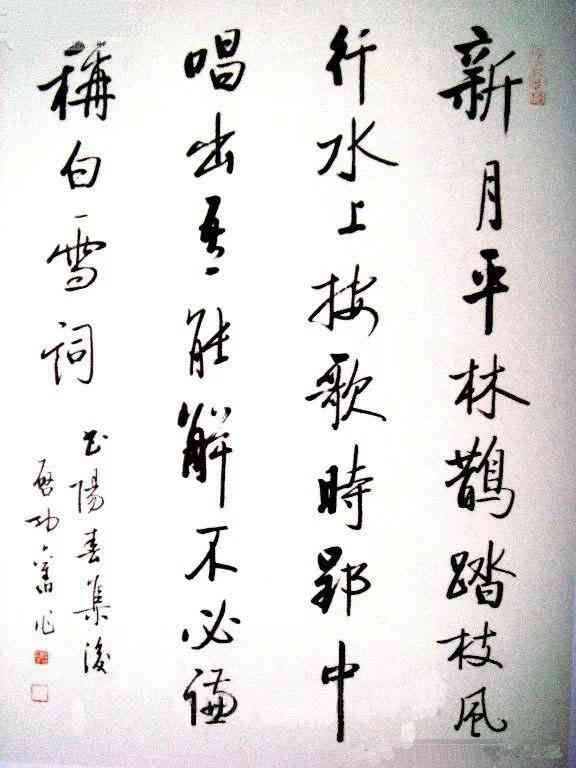 新月平林鵲踏枝風
行水上按歌時郢中
唱出吾能解不必謙
稱白雪詞
书陽春集後
啟功舊作